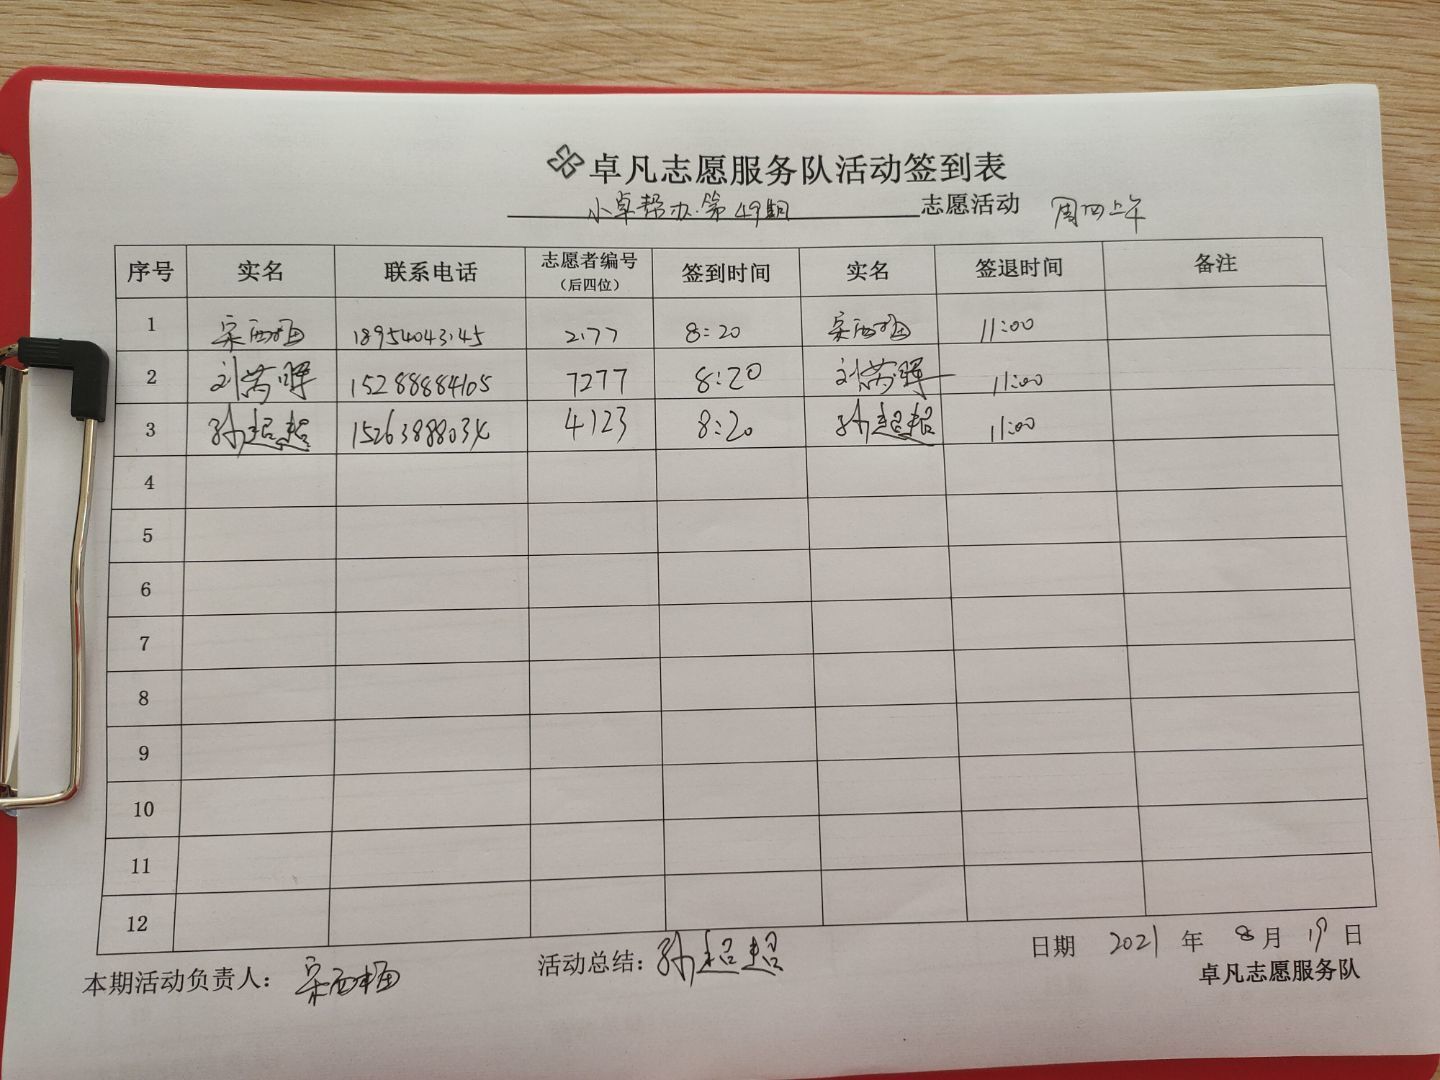 卓凡志愿服务队活动签到表
小卓帮办·第49期 志愿活动 周四上午
序号 实名 联系电话 志愿者编号（后四位） 签到时间 实名 签退时间 备注
1 18954043145 2177 8:20 11:00
2 15288884105 7277 8:20 11:00
3 孙超超 4123 8:20 孙超超 11:00
4
5
6
7
8
9
10
11
12
本期活动负责人： 活动总结：孙超超 日期 2021 年 8 月 19 日
卓凡志愿服务队